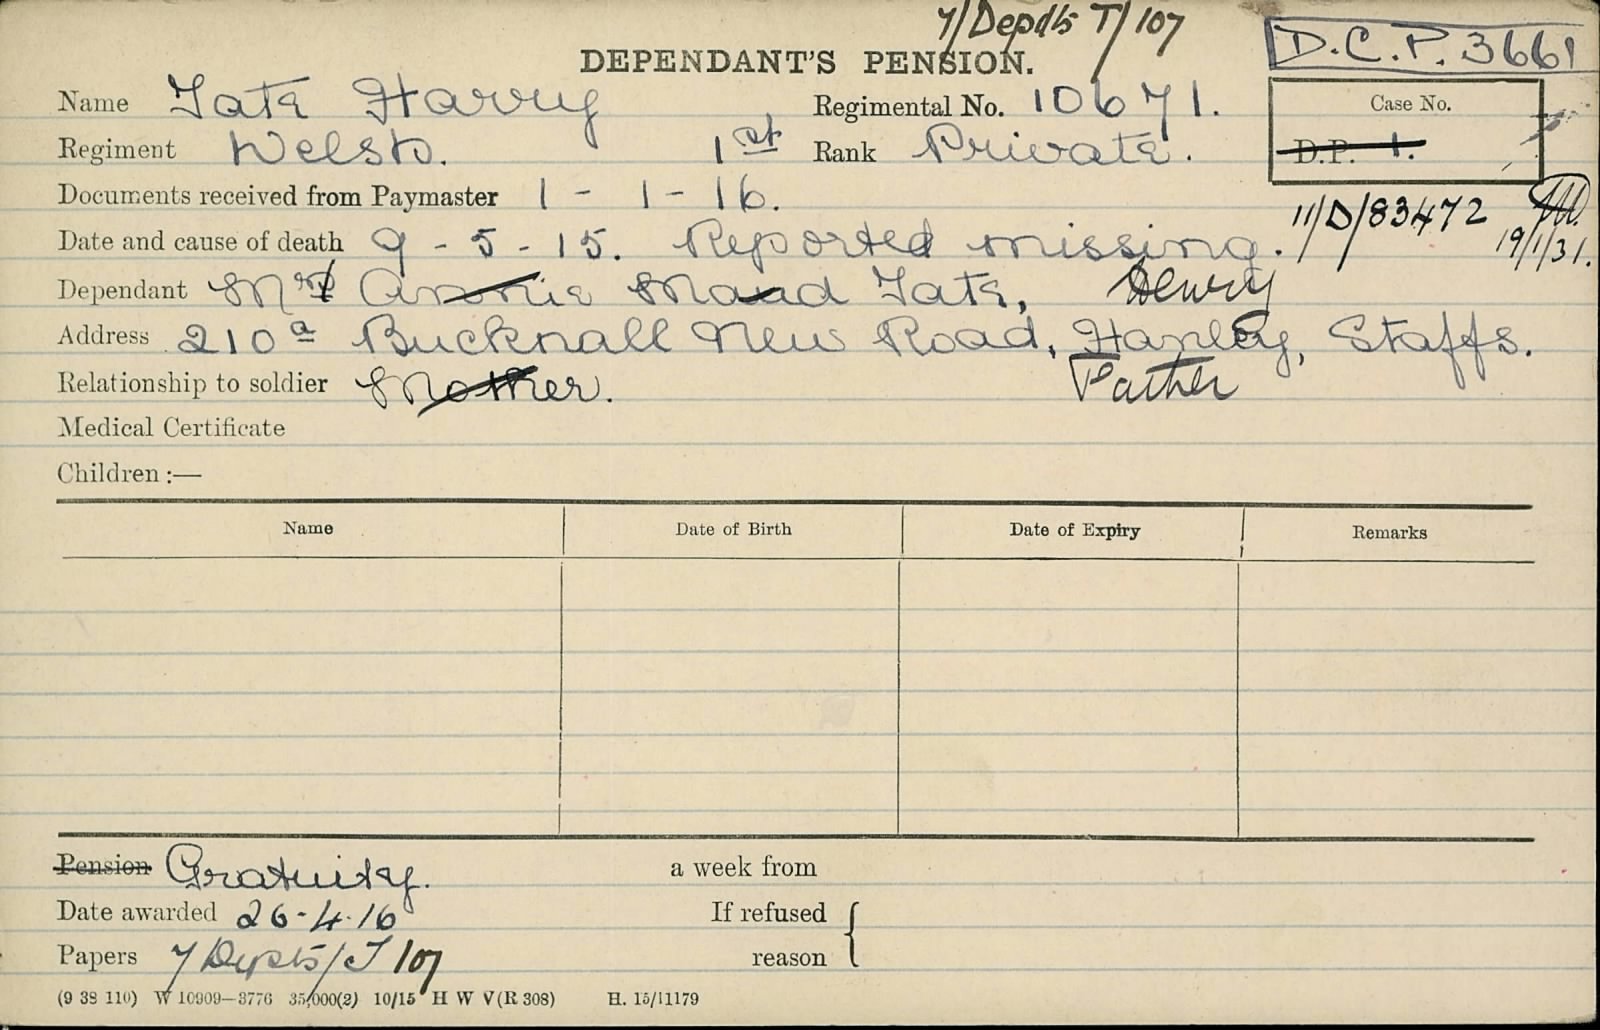 7/Depdts T/107
DEPENDANT'S PENSION.
D.C.P. 3661
Name Tate Harry Regimental No. 10671.
Case No.
Regiment Welsh. 1st Rank Private.
D.P. 1.
Documents received from Paymaster 1 - 1 - 16.
11/D/83472
19/1/31.
Date and cause of death 9 - 5 - 15. Reported missing.
Dependant Mrs Annie Maud Tate, Henry
Address 210a Bucknall New Road, Hanley, Staffs.
Relationship to soldier Mother. Father
Medical Certificate
Children :—
Name Date of Birth Date of Expiry Remarks
Pension Gratuity. a week from
Date awarded 26-4-16 If refused
Papers 7/Depts/T 107 reason
(9 38 110) W 10909—3776 35,000(2) 10/15 H W V(R 308) H. 15/11179